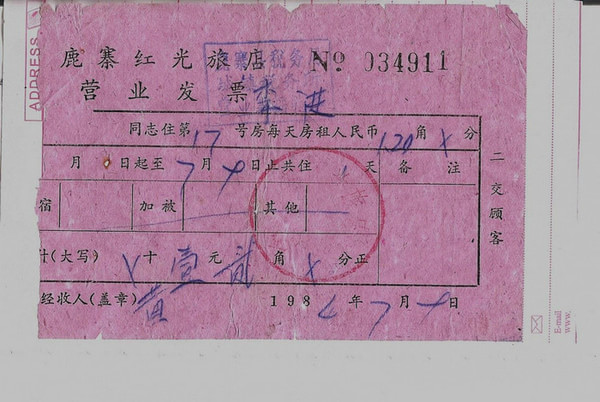 ADDRESS
鹿寨红光旅店 № 034911
营业发票 李进
同志住第17号房每天房租人民币1.20角×分
月 日起至7月 日止共住 天 备注
宿 加被 其他
计(大写)×十壹元贰角×分正
经收人(盖章)黄 198 年7月 日
二交顾客
E-mail
www.